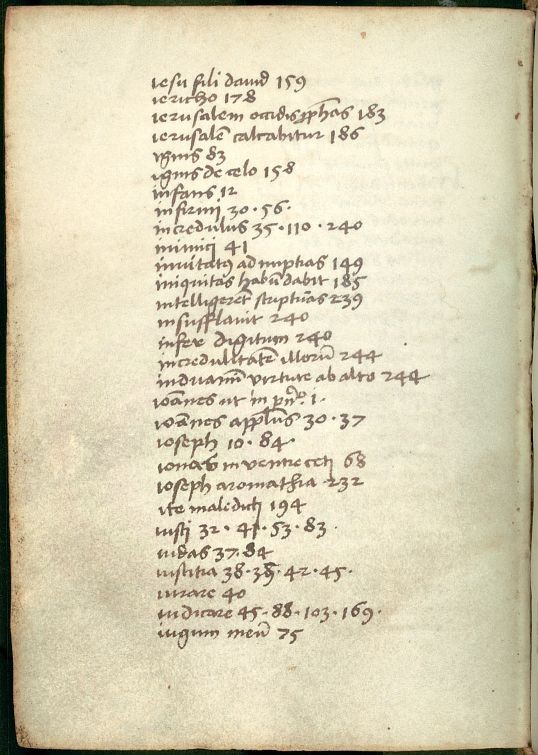 iesu fili dauid 159
iericho 178
ierusalem occidis ꝓphãs 183
ierusalẽ calcabitur 186
ignis 83
ignis de celo 158
infans 12
infirmi 30 · 56 ·
incredulus 35 · 110 · 240
inimici 41
inuitatꝰ ad nuptias 149
iniquitas habũdabit 185
intelligerẽt scripturas 239
insufflauit 240
infer digitum 240
incredulitatẽ illorũ 244
induamĩ virtute ab alto 244
ioannes ut in 1 ·
ioannes 30 · 37
ioseph 10 · 84 ·
ionas in uentre ceti 68
ioseph aromathia 232
ite maledicti 194
iusti 32 · 41 · 53 · 83 ·
iudas 37 · 84
iustitia 38 · 38 · 42 · 45 ·
iurare 40
iudicare 45 · 88 · 103 · 169 ·
iugum meũ 75